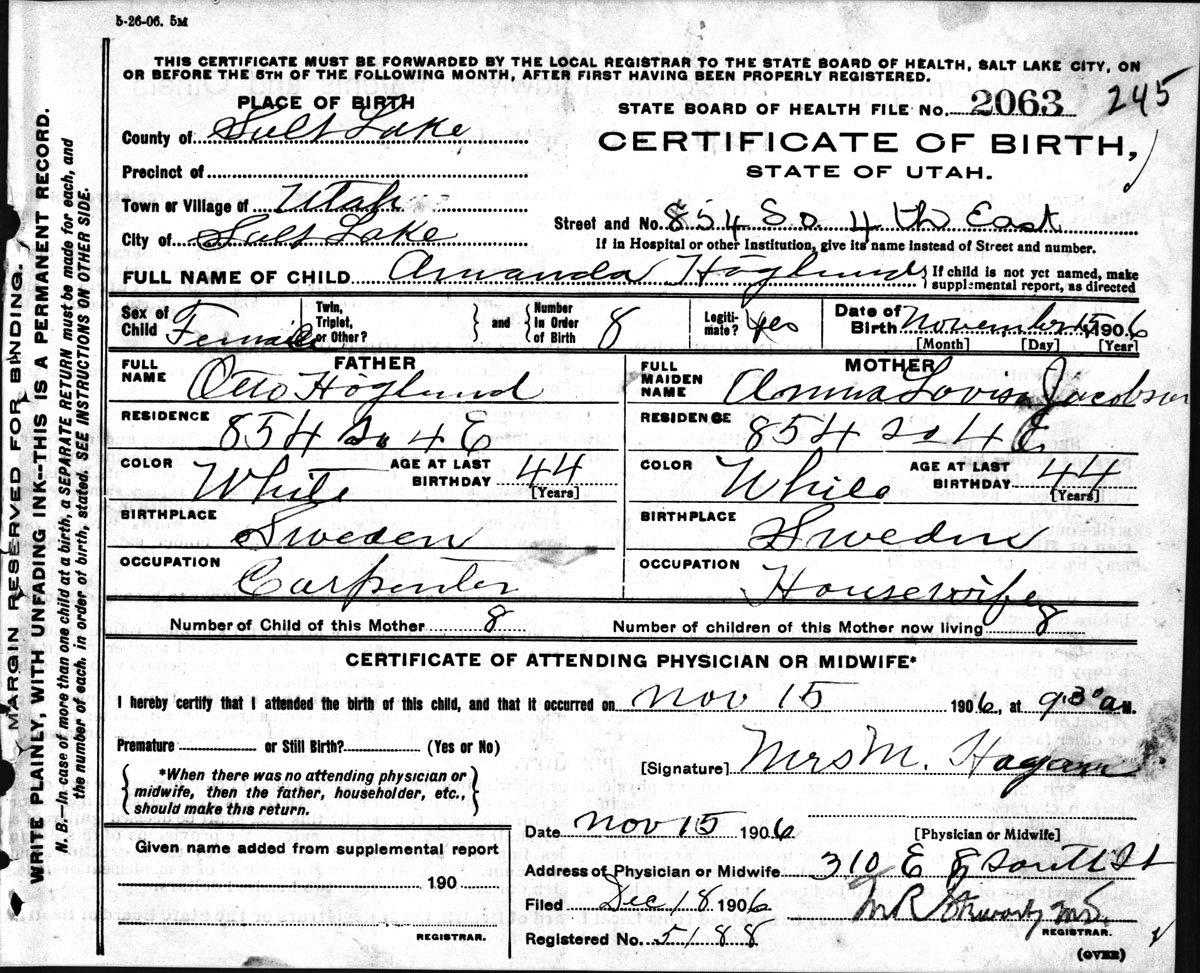 5-26-06. 5M
THIS CERTIFICATE MUST BE FORWARDED BY THE LOCAL REGISTRAR TO THE STATE BOARD OF HEALTH, SALT LAKE CITY, ON
OR BEFORE THE 5TH OF THE FOLLOWING MONTH, AFTER FIRST HAVING BEEN PROPERLY REGISTERED.
PLACE OF BIRTH
STATE BOARD OF HEALTH FILE No. 2063 245
County of Salt Lake
CERTIFICATE OF BIRTH,
Precinct of
STATE OF UTAH.
Town or Village of Utah
Street and No. 854 So. 4th East
City of Salt Lake
If in Hospital or other Institution, give its name instead of Street and number.
FULL NAME OF CHILD Amanda Höglund { If child is not yet named, make supplemental report, as directed
Sex of Child Female Twin, Triplet, or Other? } and { Number in Order of Birth 8 Legiti-mate? Yes Date of Birth November 15 1906
[Month] [Day] [Year]
FATHER MOTHER
FULL NAME Otto Höglund FULL MAIDEN NAME Anna Lovisa Jacobson
RESIDENCE 854 So 4 E RESIDENCE 854 so 4 E
COLOR White AGE AT LAST BIRTHDAY 44 [Years] COLOR White AGE AT LAST BIRTHDAY 44 [Years]
BIRTHPLACE Sweden BIRTHPLACE Sweden
OCCUPATION Carpenter OCCUPATION Housewife
Number of Child of this Mother 8 Number of children of this Mother now living 8
CERTIFICATE OF ATTENDING PHYSICIAN OR MIDWIFE*
I hereby certify that I attended the birth of this child, and that it occurred on Nov 15 1906, at 9.30 a M.
Premature or Still Birth? (Yes or No)
[Signature] Mrs M.
{ *When there was no attending physician or midwife, then the father, householder, etc., should make this return. }
Date Nov 15 1906 [Physician or Midwife]
Given name added from supplemental report
Address of Physician or Midwife 310 E 8 South St
190
Filed Dec 18 1906
REGISTRAR.
REGISTRAR.
Registered No. 5188
(OVER)
MARGIN RESERVED FOR BINDING.
WRITE PLAINLY, WITH UNFADING INK--THIS IS A PERMANENT RECORD.
N. B.—In case of more than one child at a birth, a SEPARATE RETURN must be made for each, and
the number of each, in order of birth, stated. SEE INSTRUCTIONS ON OTHER SIDE.